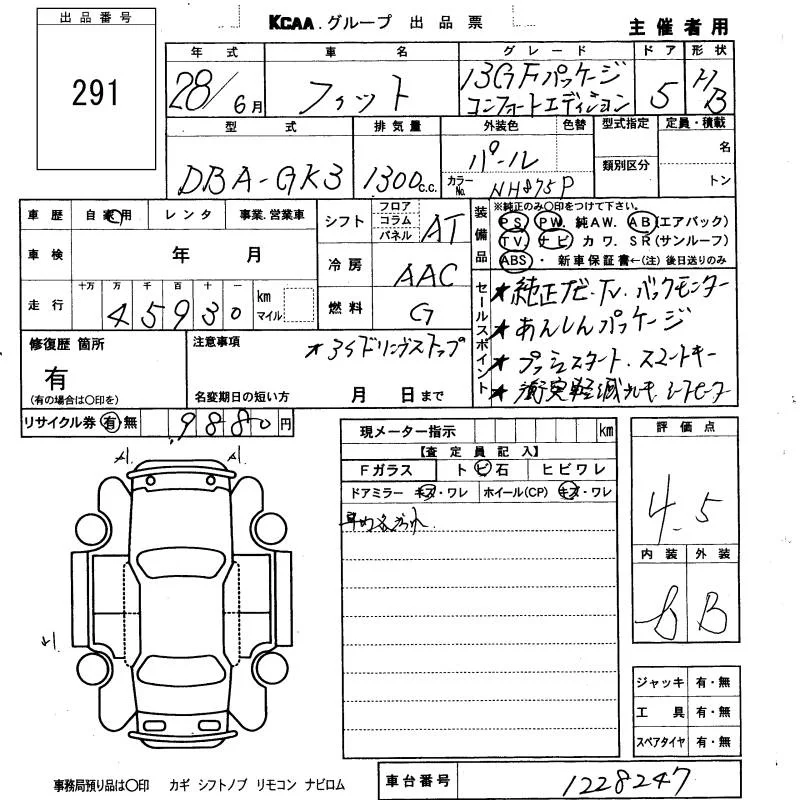 出品番号
291
KCAA.グループ 出品票
主催者用
年式 車名 グレード ドア 形状
28/6月 フィット 13G Fパッケージ コンフォートエディション 5 HB
型式 排気量 外装色 色替 型式指定 定員・積載
DBA-GK3 1300c.c. パール カラーNo. NH875P 類別区分 名 トン
車歴 自家用 レンタ 事業.営業車
車検 年 月
走行 十万 万 千 百 十 一 km マイル
45930
シフト フロア コラム パネル AT
冷房 AAC
燃料 G
装備品
※純正のみ○印をつけて下さい。
PS PW. 純AW. AB(エアバック)
TV. ナビ カワ. SR(サンルーフ)
ABS・新車保証書←(注)後日送りのみ
セールスポイント
★純正ナビ.TV.バックモニター
★あんしんパッケージ
★プッシュスタート.スマートキー
★衝突軽減ブレーキ シートヒーター
修復歴 箇所
有
(有の場合は○印を)
注意事項
★アイドリングストップ
名変期日の短い方 月 日まで
リサイクル券 有・無 9880円
現メーター指示 km
【査定員記入】
Fガラス トビ石 ヒビワレ
ドアミラー キズ・ワレ ホイール(CP) キズ・ワレ
評価点
4.5
内装 外装
B B
A1 A1
A1
ジャッキ 有・無
工具 有・無
スペアタイヤ 有・無
事務局預り品は○印 カギ シフトノブ リモコン ナビロム
車台番号 1228247